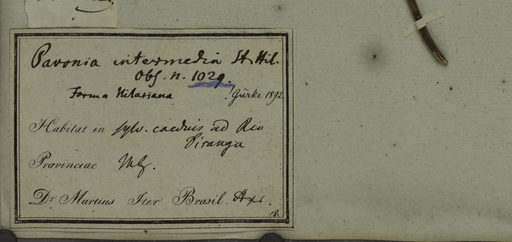 Pavonia intermedia St. Hil.
Obs. n. 1029.
Forma Hilariana Gürke 1892.
Habitat in sylv. caeduis ad Rio
Piranga
Provinciae
Dr Martius Iter Brasil.